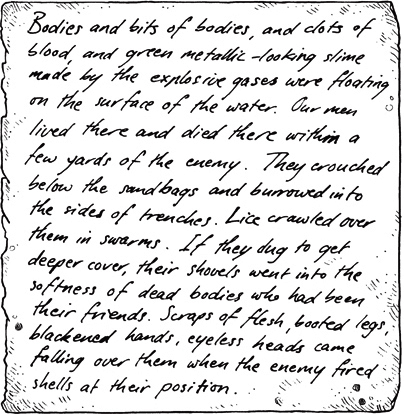 Bodies and bits of bodies, and clots of
blood, and green metallic-looking slime
made by the explosive gases were floating
on the surface of the water. Our men
lived there and died there within a
few yards of the enemy. They crouched
below the sandbags and burrowed into
the sides of trenches. Lice crawled over
them in swarms. If they dug to get
deeper cover, their shovels went into the
softness of dead bodies who had been
their friends. Scraps of flesh, booted legs,
blackened hands, eyeless heads came
falling over them when the enemy fired
shells at their position.